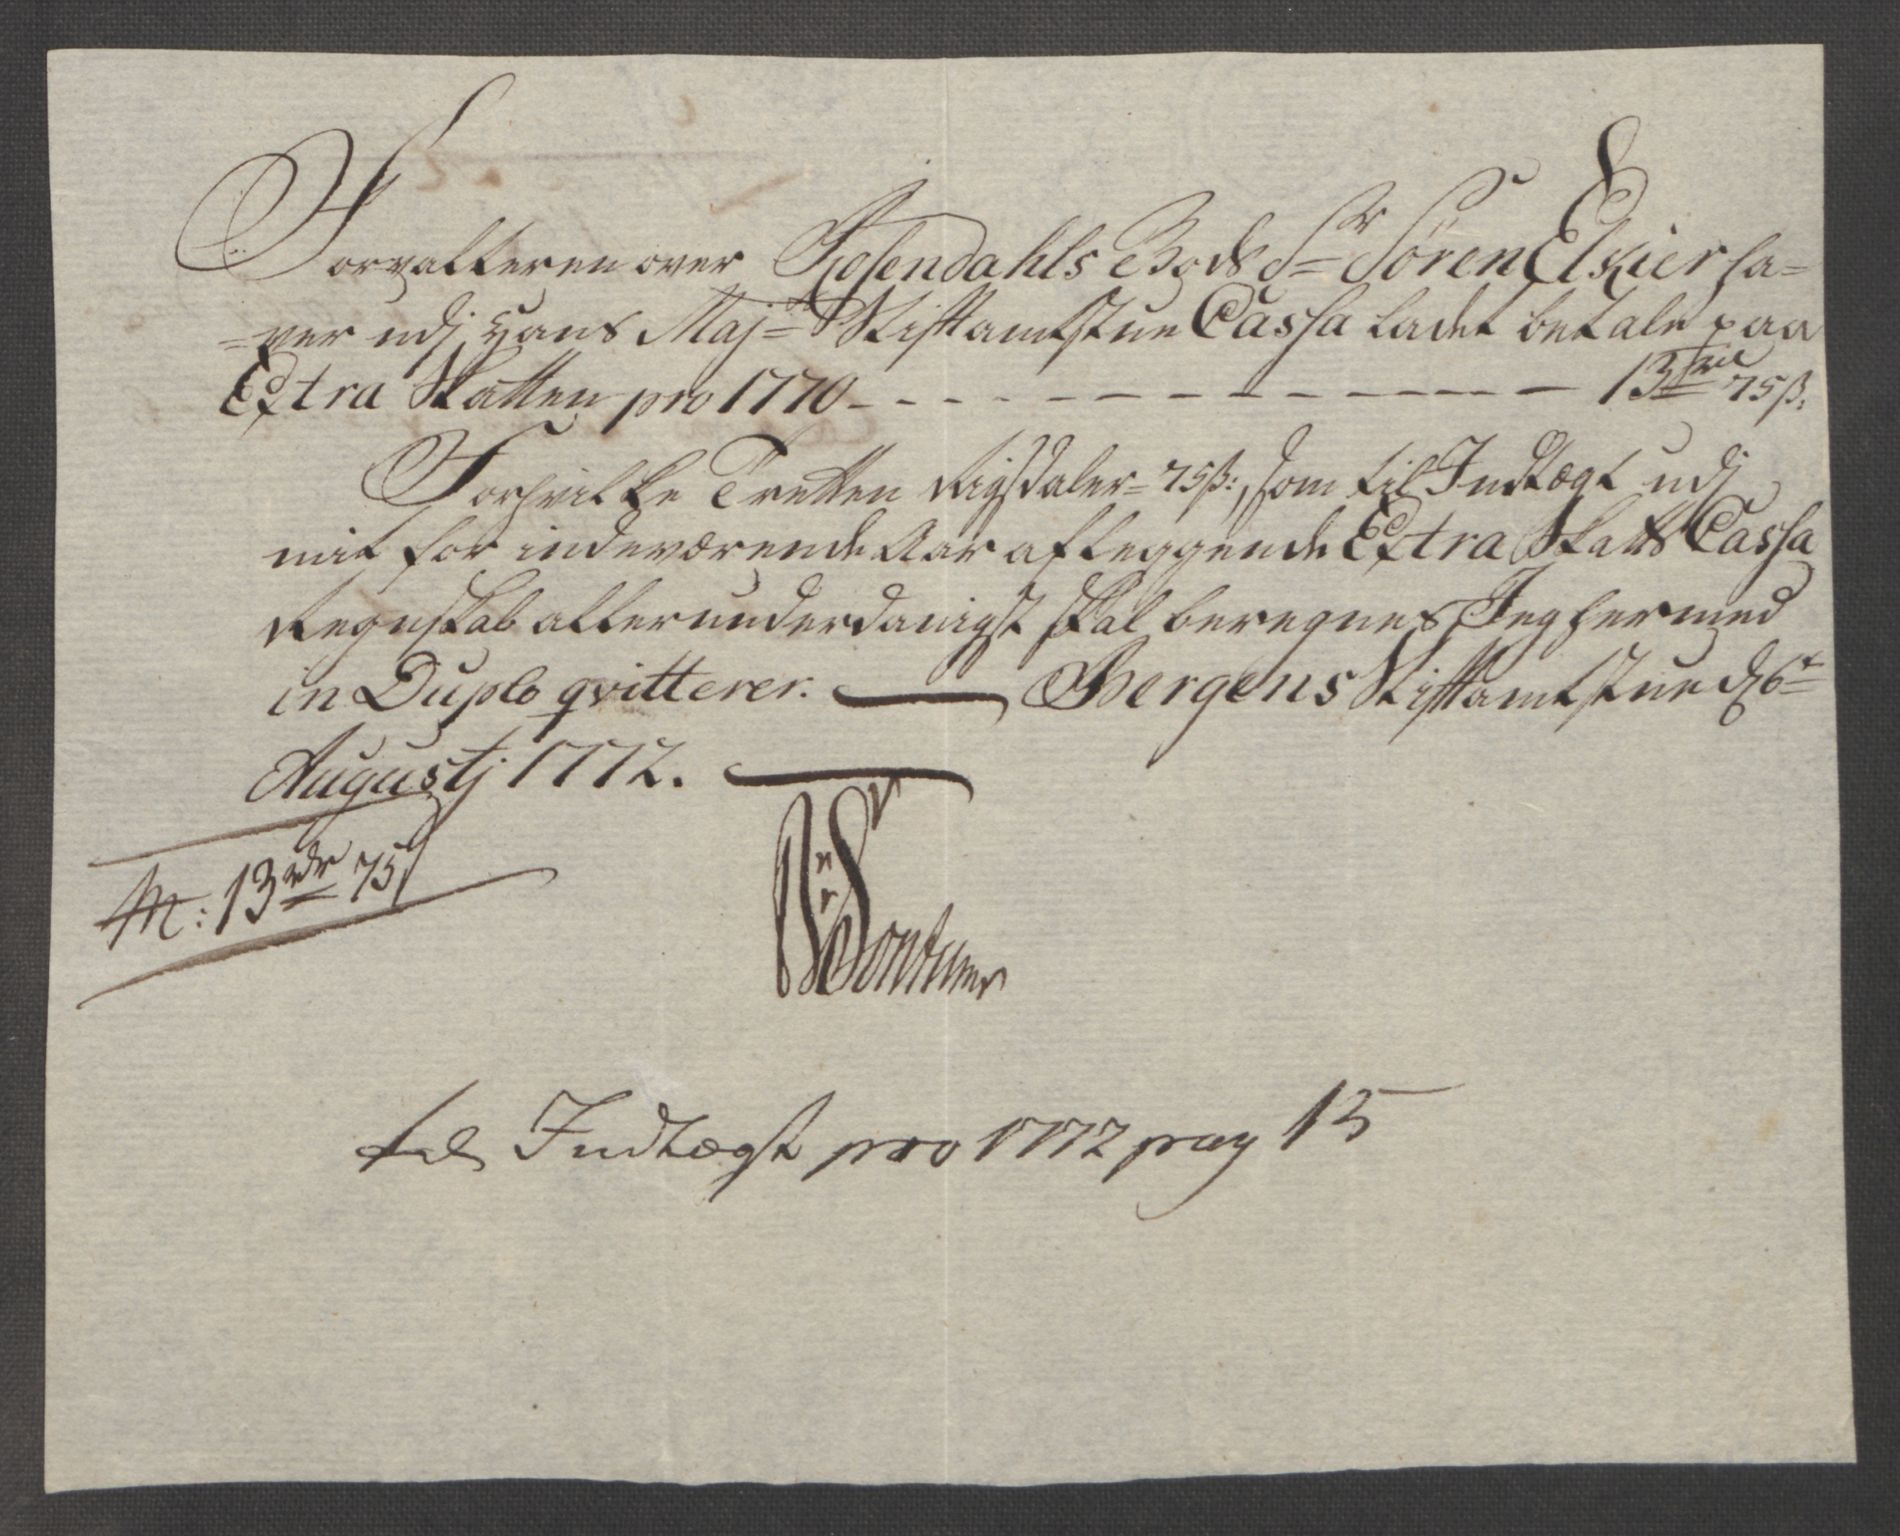 Forvalteren over Rosendahls Gods Sr Sören Elskier ha=
=ver udj Hans Majts Stiftamtstue Cassa ladet betale paa
Extra Skatten pro 1770 - - - - - - - - - - 13 rdr 75 ß.
Forhvilke Tretten Rigsdaler 75 ß:, som til Indtægt udj
mit for indeværende Aar aflæggende Extra Skatts Cassa
Regnskab allerunderdanigst skal beregnes, Jeg hermed
in Duplo qvitterer. Bergens Stiftamtstue d 6te
Augustj 1772.
13 rdr 75
til Indtægt pro 1772 pag 15